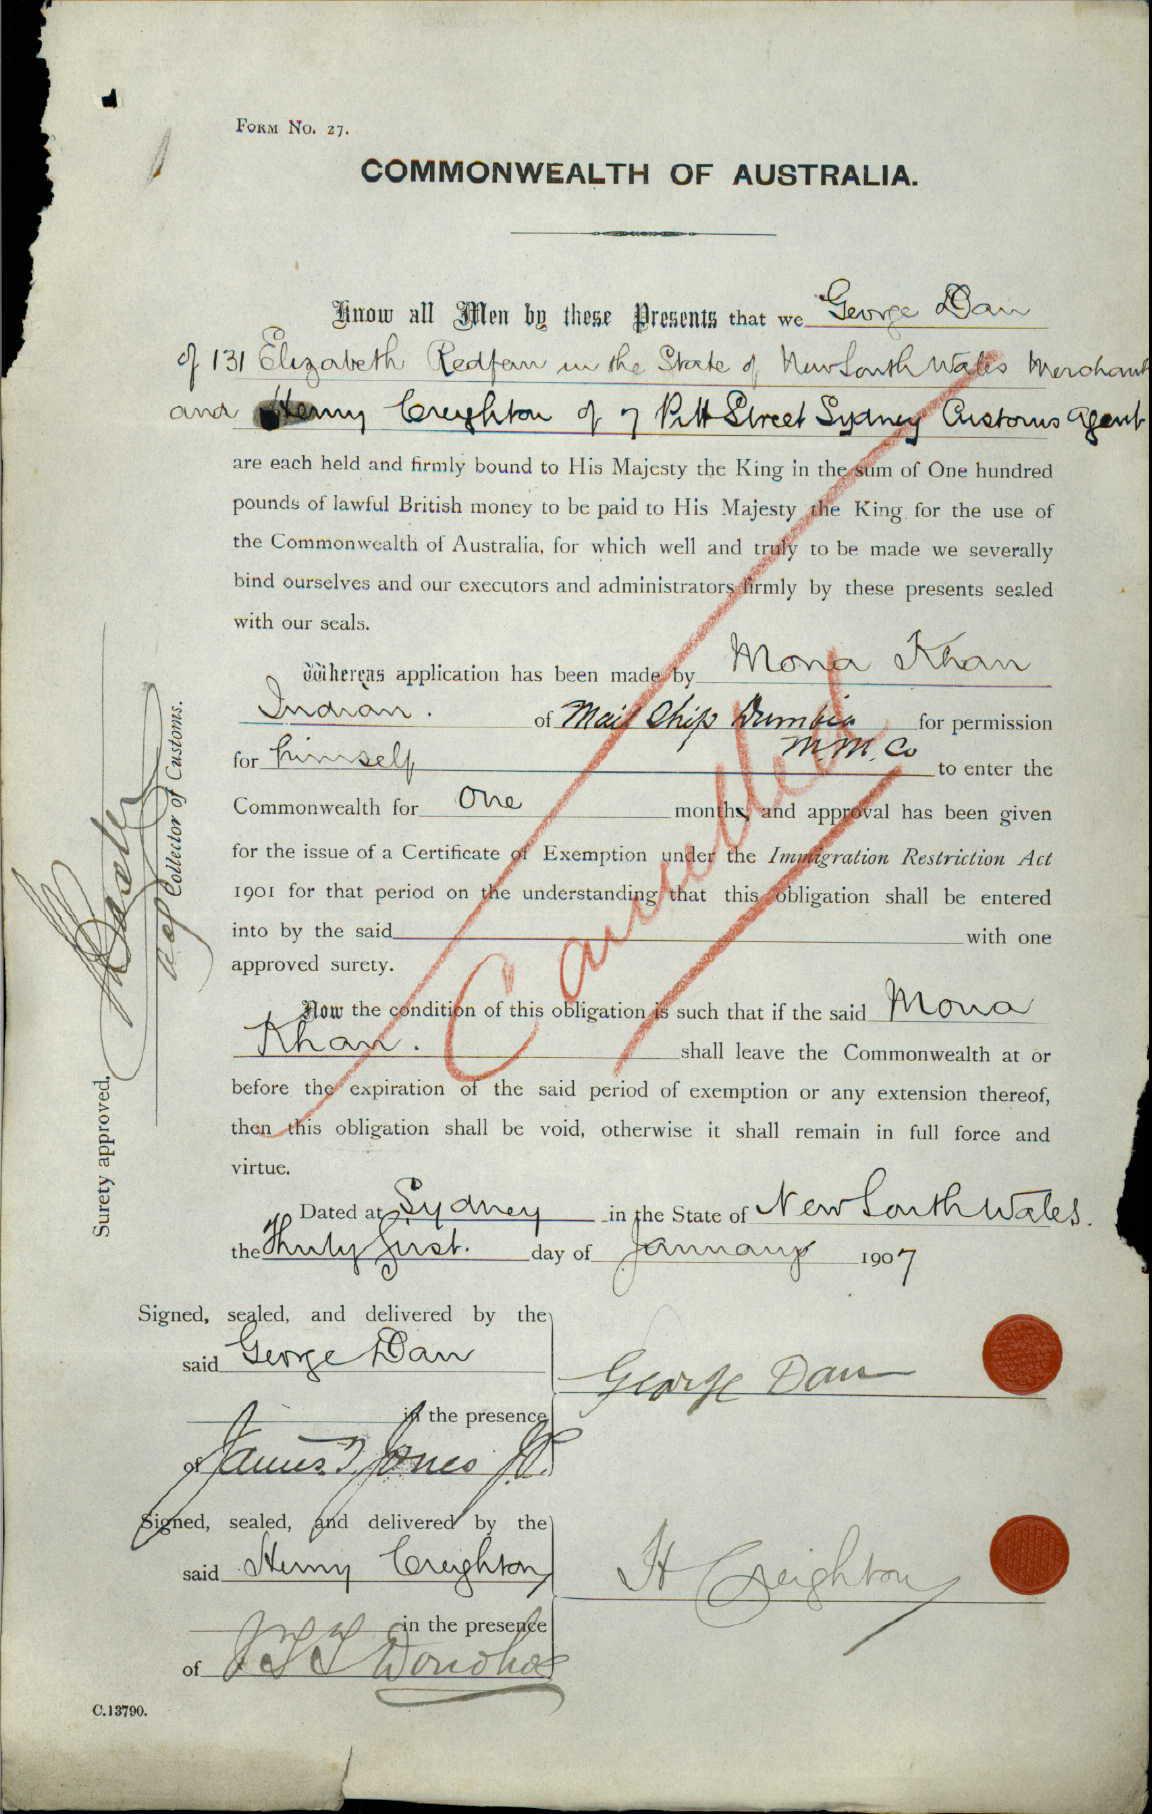 FORM No. 27.
COMMONWEALTH OF AUSTRALIA.
Know all Men by these Presents that we George Dan
of 131 Elizabeth Redfern in the State of New South Wales Merchant
and Henry Creighton of 7 Pitt Street Sydney Customs Agent
are each held and firmly bound to His Majesty the King in the sum of One hundred
pounds of lawful British money to be paid to His Majesty the King for the use of
the Commonwealth of Australia, for which well and truly to be made we severally
bind ourselves and our executors and administrators firmly by these presents sealed
with our seals.
Whereas application has been made by Mona Khan
Indian. of Mail Ship Dumbia for permission
M.M. Co
for himself to enter the
Commonwealth for One months, and approval has been given
for the issue of a Certificate of Exemption under the Immigration Restriction Act
1901 for that period on the understanding that this obligation shall be entered
into by the said with one
approved surety.
Now the condition of this obligation is such that if the said Mona
Khan. shall leave the Commonwealth at or
before the expiration of the said period of exemption or any extension thereof,
then this obligation shall be void, otherwise it shall remain in full force and
virtue.
Dated at Sydney in the State of New South Wales.
the Thirty first. day of January 1907
Cancelled
Surety approved,
Collector of Customs.
Signed, sealed, and delivered by the
said George Dan
George Dan
in the presence
of James T Jones J.P.
Signed, sealed, and delivered by the
said Henry Creighton
H Creighton
in the presence
of Donohoe
C.13790.